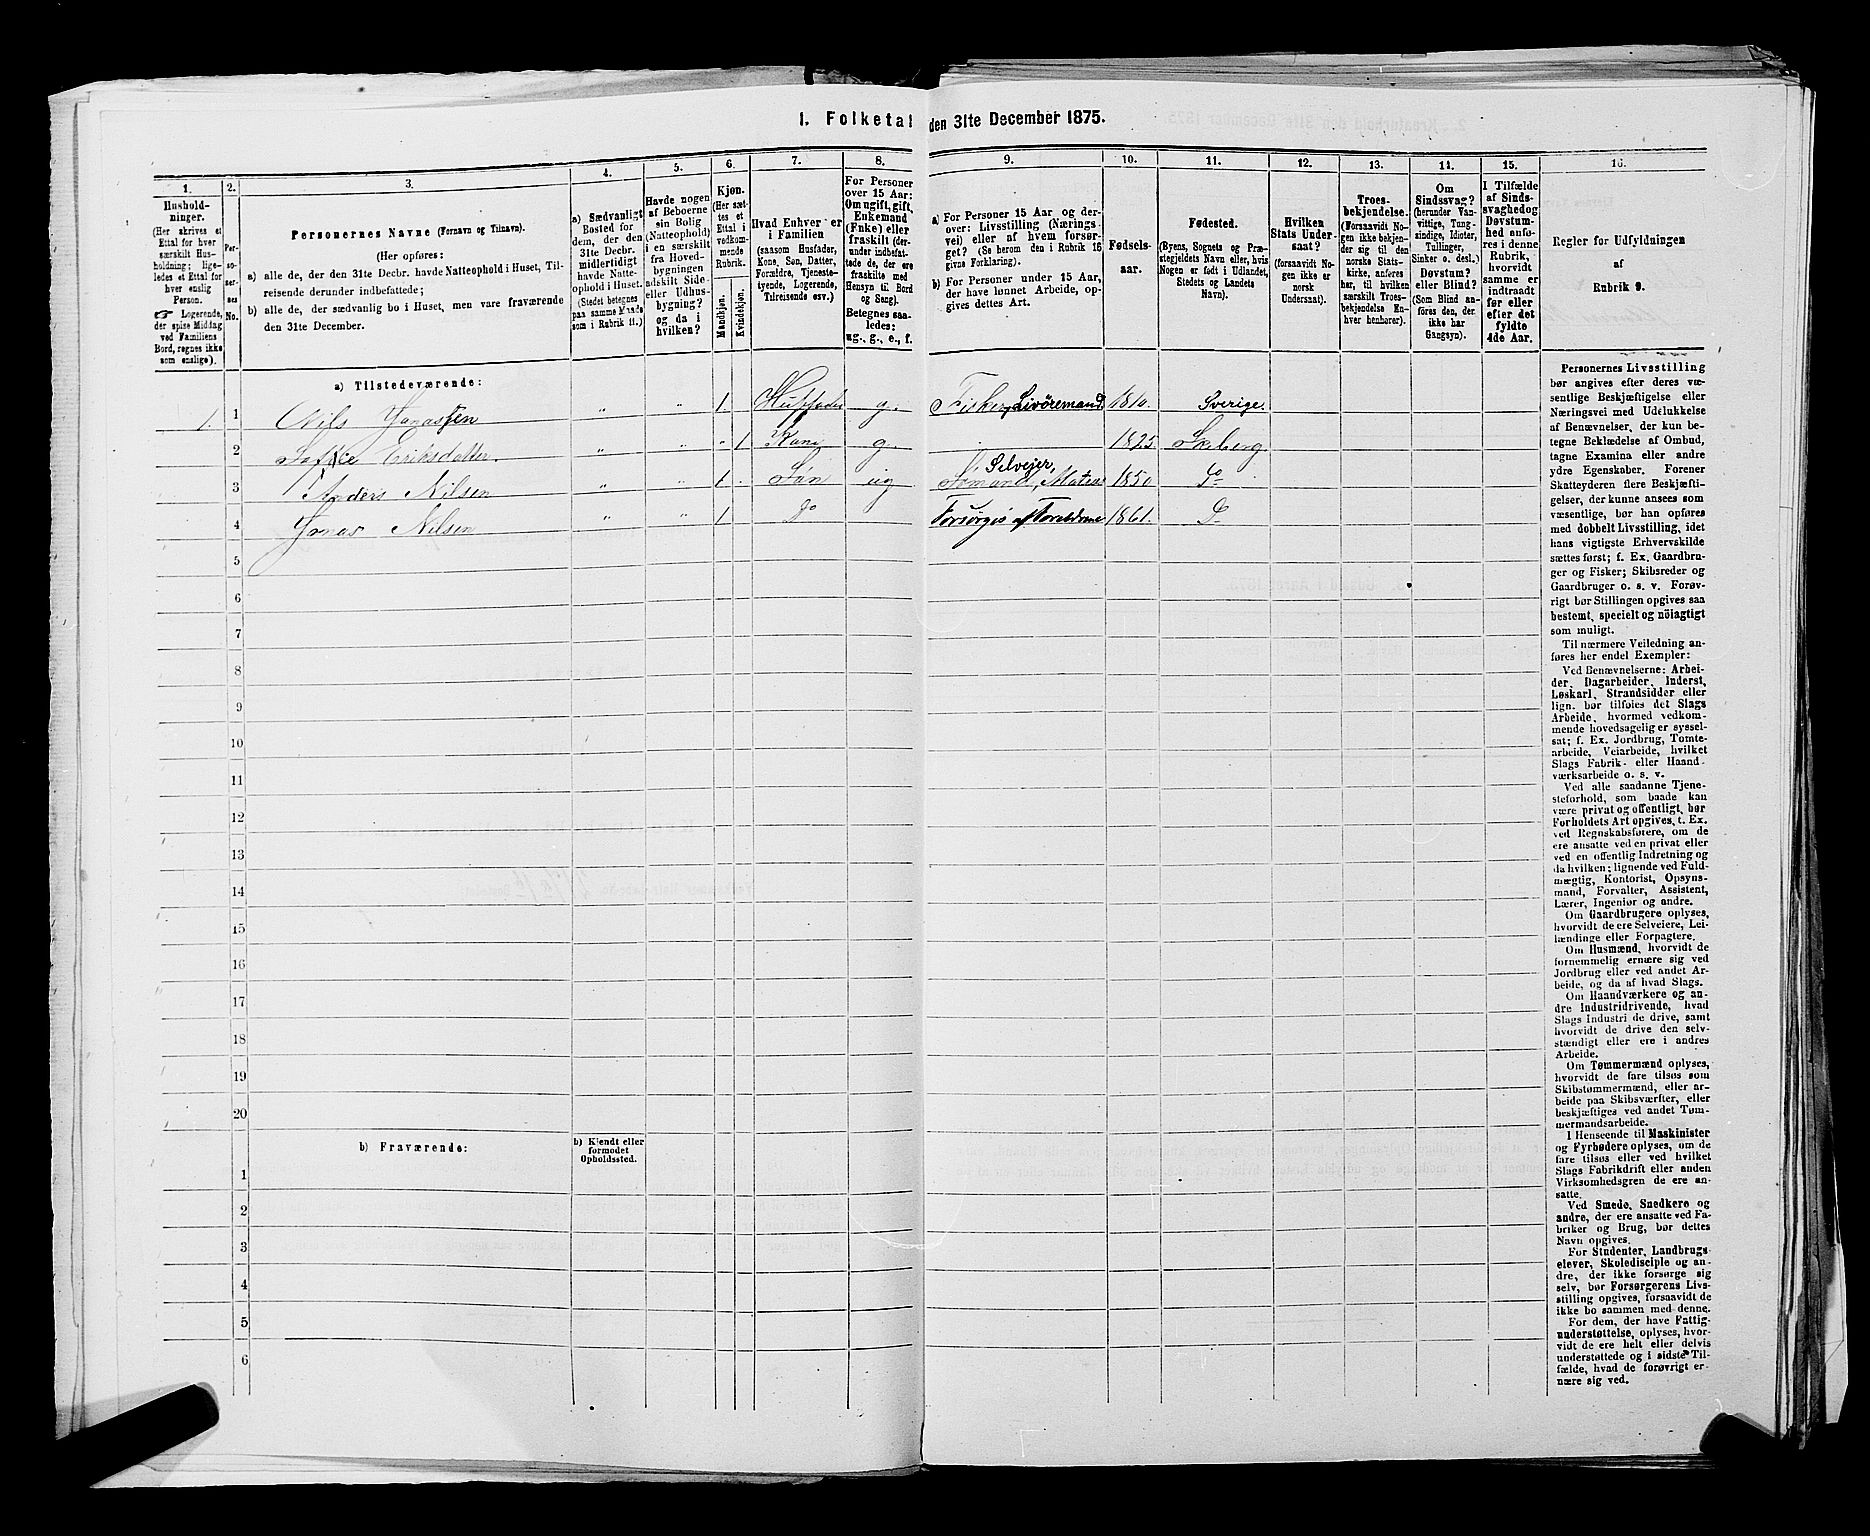 1. Folketal den 31te December 1875.
1.
Hushold-
ninger.
(Her skrives et
Ettal for hver
særskilt Hus-
holdning; lige-
ledes et Ettal for
hver enslig
Person.
☞ Logerende,
der spise Middag
ved Familiens
Bord, regnes ikke
som enslige).
2.
Per-
so-
ner-
nes
No.
3.
Personernes Navne (Fornavn og Tilnavn).
(Her opføres:
a) alle de, der den 31te Decbr. havde Natteophold i Huset, Til-
reisende derunder indbefattede;
b) alle de, der sædvanlig bo i Huset, men vare fraværende
den 31te December.
4.
a) Sædvanligt
Bosted for
dem, der den
31te Decbr.
midlertidigt
havde Natte-
ophold i Huset.
(Stedet betegnes
paa samme Maade
som i Rubrik 11.)
5.
Havde nogen
af Beboerne
sin Bolig
(Natteophold)
i en særskilt
fra Hoved-
bygningen
adskilt Side-
eller Udhus-
bygning?
og da i
hvilken?
6.
Kjøn.
(Her sæt-
tes et
Ettal i
vedkom-
mende
Rubrik.
Mandkjøn.
Kvindekjøn.
7.
Hvad Enhver er
i Familien
(saasom Husfader,
Kone, Søn, Datter,
Forældre, Tjeneste-
tyende, Logerende,
Tilreisende osv.)
8.
For Personer
over 15 Aar:
Om ugift, gift,
Enkemand
(Enke) eller
fraskilt (der-
under indbefat-
tede de, der ere
fraskilte med
Hensyn til Bord
og Seng).
Betegnes saa-
ledes:
ug., g., e., f.
9.
a) For Personer 15 Aar og der-
over: Livsstilling (Nærings-
vei) eller af hvem forsør-
get? (Se herom den i Rubrik 16
givne Forklaring).
b) For Personer under 15 Aar,
der have lønnet Arbeide, op-
gives dettes Art.
10.
Fødsels-
aar.
11.
Fødested.
(Byens, Sognets og Præ-
stegjeldets Navn eller, hvis
Nogen er født i Udlandet,
Stedets og Landets
Navn).
12.
Hvilken
Stats Under-
saat?
(forsaavidt No-
gen ikke er
norsk
Undersaat).
13.
Troes-
bekjendelse.
(Forsaavidt No-
gen ikke bekjen-
der sig til den
norske Stats-
kirke, anføres
her, til hvilken
særskilt Troes-
bekjendelse En-
hver henhører).
14.
Om
Sindssvag?
(herunder Van-
vittige, Tung-
sindige, Idioter,
Tullinger,
Sinker o. desl.)
Døvstum?
eller Blind?
(Som Blind an-
føres den, der
ikke har
Gangsyn).
15.
I Tilfælde
af Sinds-
svaghed og
Døvstum-
hed anfø-
res i denne
Rubrik,
hvorvidt
samme er
indtraadt
før eller
efter det
fyldte
4de Aar.
16.
Regler for Udfyldningen
af
Rubrik 9.
a) Tilstedeværende:
1. 1 Nils Jonassen " " 1. Husfader g. Fisker, Livøremand 1810. Sverige.
2 Eriksdatter " " " 1 Kone g. 1825. Skeberg
3 Anders Nilsen " " 1 Søn ug Selvejer, Sømand, Matros 1850 Do
4 Jonas Nilsen " " 1 Do Forsørges af Forældrene 1861. Do
5
6
7
8
9
10
11
12
13
14
15
16
17
18
19
20
b) Fraværende:
b) Kjendt eller
formodet
Opholdssted.
1
2
3
4
5
6
Personernes Livsstilling
bør angives efter deres væ-
sentlige Beskjæftigelse eller
Næringsvei med Udelukkelse
af Benævnelser, der kun be-
tegne Beklædelse af Ombud,
tagne Examina eller andre
ydre Egenskaber. Forener
Skatteyderen flere Beskjæfti-
gelser, der kunne ansees som
væsentlige, bør han opføres
med dobbelt Livsstilling, idet
hans vigtigste Erhvervskilde
sættes først; f. Ex. Gaardbru-
ger og Fisker; Skibsreder og
Gaardbruger o. s. v. Forøv-
rigt bør Stillingen opgives saa
bestemt, specielt og nöiagtigt
som muligt.
Til nærmere Veiledning an-
føres her endel Exempler:
Ved Benævnelserne: Arbei-
der, Dagarbeider, Inderst,
Løskarl, Strandsidder eller
lign. bør tilføies det Slags
Arbeide, hvormed vedkom-
mende hovedsagelig er syssel-
sat; f. Ex. Jordbrug, Tomte-
arbeide, Veiarbeide, hvilket
Slags Fabrik- eller Haand-
værksarbeide o. s. v.
Ved alle saadanne Tjene-
steforhold, som baade kan
være privat og offentligt, bør
Forholdets Art opgives, t. Ex.
ved Regnskabsførere, om de
ere ansatte ved en privat eller
ved en offentlig Indretning og
da hvilken; lignende ved Fuld-
mægtig, Kontorist, Opsyns-
mand, Forvalter, Assistent,
Lærer, Ingeniør og andre.
Om Gaardbrugere oplyses,
hvorvidt de ere Selveiere, Lei-
lændinge eller Forpagtere.
Om Husmænd, hvorvidt de
fornemmelig ernære sig ved
Jordbrug eller ved andet Ar-
beide, og da af hvad Slags.
Om Haandværkere og an-
dre Industridrivende, hvad
Slags Industri de drive, samt
hvorvidt de drive den selv-
stændigt eller ere i andres
Arbeide.
Om Tømmermænd oplyses,
hvorvidt de fare tilsøs som
Skibstømmermænd, eller ar-
beide paa Skibsværfter, eller
beskjæftiges ved andet Tøm-
mermandsarbeide.
I Henseende til Maskinister
og Fyrbødere oplyses, om de
fare tilsøs eller ved hvilket
Slags Fabrikdrift eller anden
Virksomhedsgren de ere an-
satte.
Ved Smede, Snedkere og
andre, der ere ansatte ved Fa-
briker og Brug, bør dettes
Navn opgives.
For Studenter, Landbrugs-
elever, Skoledisciple og an-
dre, der ikke forsørge sig
selv, bør Forsørgerens Livs-
stilling opgives, forsaavidt de
ikke bo sammen med denne.
For dem, der have Fattig-
understøttelse, oplyses, hvor-
vidt de ere helt eller delvis
understøttede og i sidste Til-
fælde, hvad de forøvrigt er-
nære sig ved.